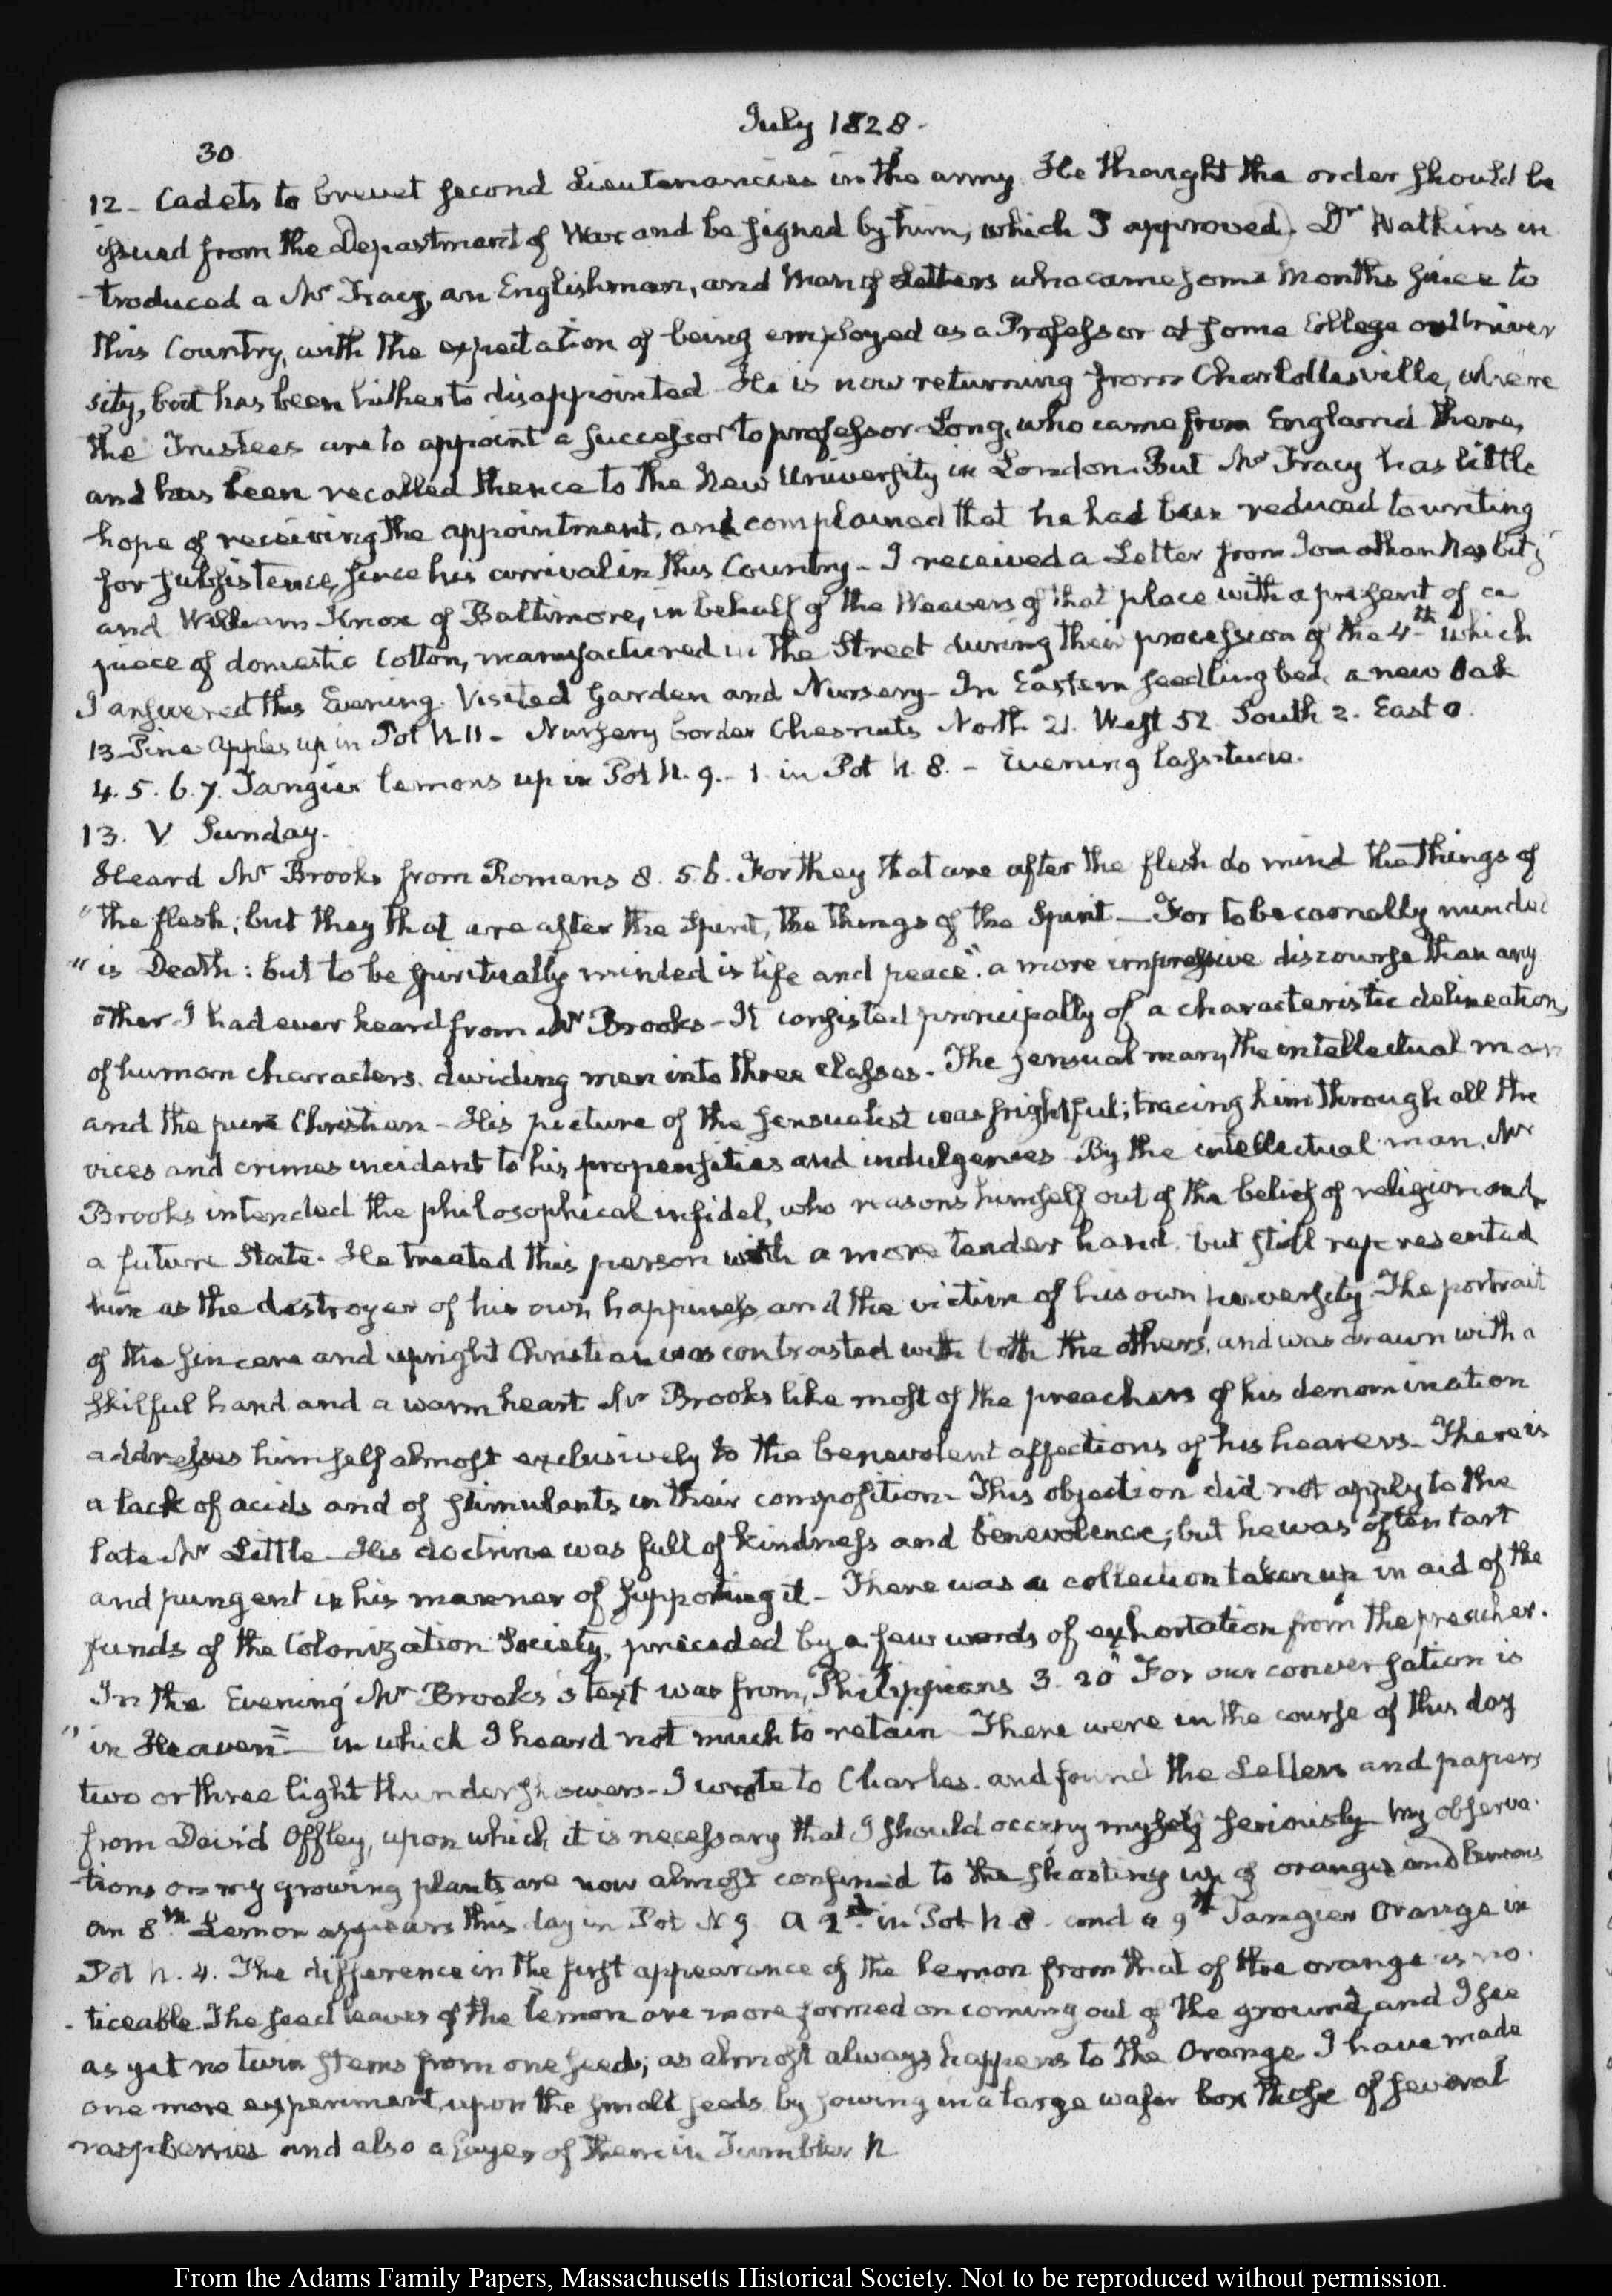 July 1828.
30
12 - Cadets to brevet second Lieutenancies in the army. He thought the order should be
issued from the Department of War and be signed by him, which I approved. Dr Watkins in
-troduced a Mr Tracy, an Englishman, and Man of Letters who came some Months since to
this Country, with the expectation of being employed as a Professor at some College or Univer
sity, but has been hitherto disappointed. He is now returning from Charlottesville, where
the Trustees are to appoint a successor to professor Long, who came from England there,
and has been recalled thence to the New University in London. But Mr Tracy has little
hope of receiving the appointment, and complained that he had been reduced to writing
for subsistence, since his arrival in this Country - I received a Letter from Jonathan
and William Knox of Baltimore, in behalf of the Weavers of that place with a present of a
piece of domestic Cotton, manufactured in the Street during their procession of the 4th which
I answered this Evening. Visited Garden and Nursery - In Eastern seedling bed, a new Oak
13 Pine Apples up in Pot N. 11 - Nursery border Chesnuts North 21. West 52 South 2. East 0.
4. 5. 6. 7. Tangier lemons up in Pot N. 9. - 1 in Pot N. 8. - Evening lassitude.
13. V Sunday.
Heard Mr Brooks from Romans 8. 5.6. For they that are after the flesh do mind the things of
"the flesh; but they that are after the Spirit, the things of the Spirit - For to be carnally minded
"is Death: but to be spiritually minded is life and peace". a more impressive discourse than any
other I had ever heard from Mr Brooks - It consisted principally of a characteristic delineation,
of human characters. dividing men into three classes. The sensual man, the intellectual man
and the pure Christian - His picture of the sensualist was frightful; tracing him through all the
vices and crimes incident to his propensities and indulgences. By the intellectual man, Mr
Brooks intended the philosophical infidel, who reasons himself out of the belief of religion and
a future State. He treated this person with a more tender hand, but still represented
him as the destroyer of his own happiness and the victim of his own perversity. The portrait
of the sincere and upright Christian was contrasted with both the others, and was drawn with a
skilful hand and a warm heart. Mr Brooks like most of the preachers of his denomination
addresses himself almost exclusively to the benevolent affections of his hearers - There is
a lack of acids and of stimulants in their composition - This objection did not apply to the
late Mr Little - His doctrine was full of kindness and benevolence; but he was often tart
and pungent in his manner of supporting it - There was a collection taken up in aid of the
funds of the Colonization Society, preceded by a few words of exhortation from the preacher.
In the Evening Mr Brooks's text was from, Philippians 3. 20 "For our conversation is
"in Heaven" - in which I heard not much to retain There were in the course of this day
two or three light thunder showers - I wrote to Charles. and found the Letters and papers
from David Offley, upon which it is necessary that I should occupy myself seriously My observa-
tions on my growing plants are now almost confined to the shooting up of oranges and lemons
an 8th Lemon appears this day in Pot N 9. A 2d in Pot N. 8. and a 9th Tangier Orange in
Pot N. 4. The difference in the first appearance of the lemon from that of the orange is no
-ticeable. The seed leaves of the lemon are more formed on coming out of the ground, and I see
as yet no twin stems from one seed; as almost always happens to the Orange. I have made
one more experiment, upon the small seeds by sowing in a large wafer box those of several
raspberries and also a layer of them in Tumbler N
From the Adams Family Papers, Massachusetts Historical Society. Not to be reproduced without permission.